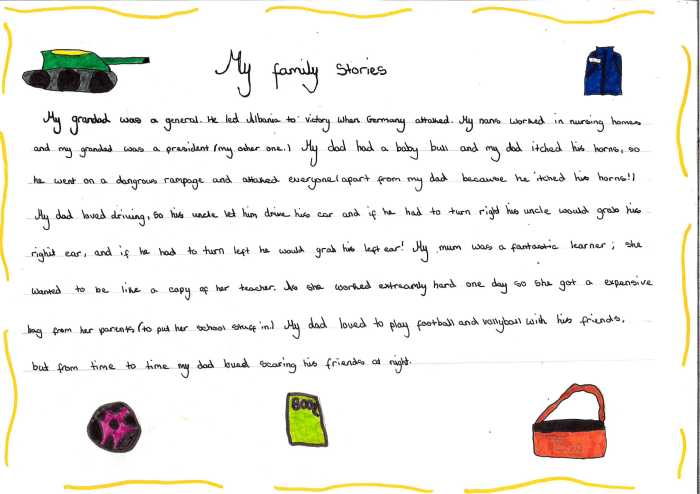 My family Stories
My grandad was a general. He led Albania to victory when Germany attaked. My nans worked in nursing homes
and my grandad was a president (my other one.) My dad had a baby bull and my dad itched his horns, so
he went on a dangrous rampage and attaked everyone (apart from my dad because he itched his horns!)
My dad loved driving, so his uncle let him drive his car and if he had to turn right his uncle would grab his
right ear, and if he had to turn left he would grab his left ear! My mum was a fantastic learner; she
wanted to be like a copy of her teacher. So she worked extreamly hard one day so she got a expensive
bag from her parents (to put her school stuff in.) My dad loved to play football and vollyball with his friends,
but from time to time my dad loved scaring his friends at night.
BOOK